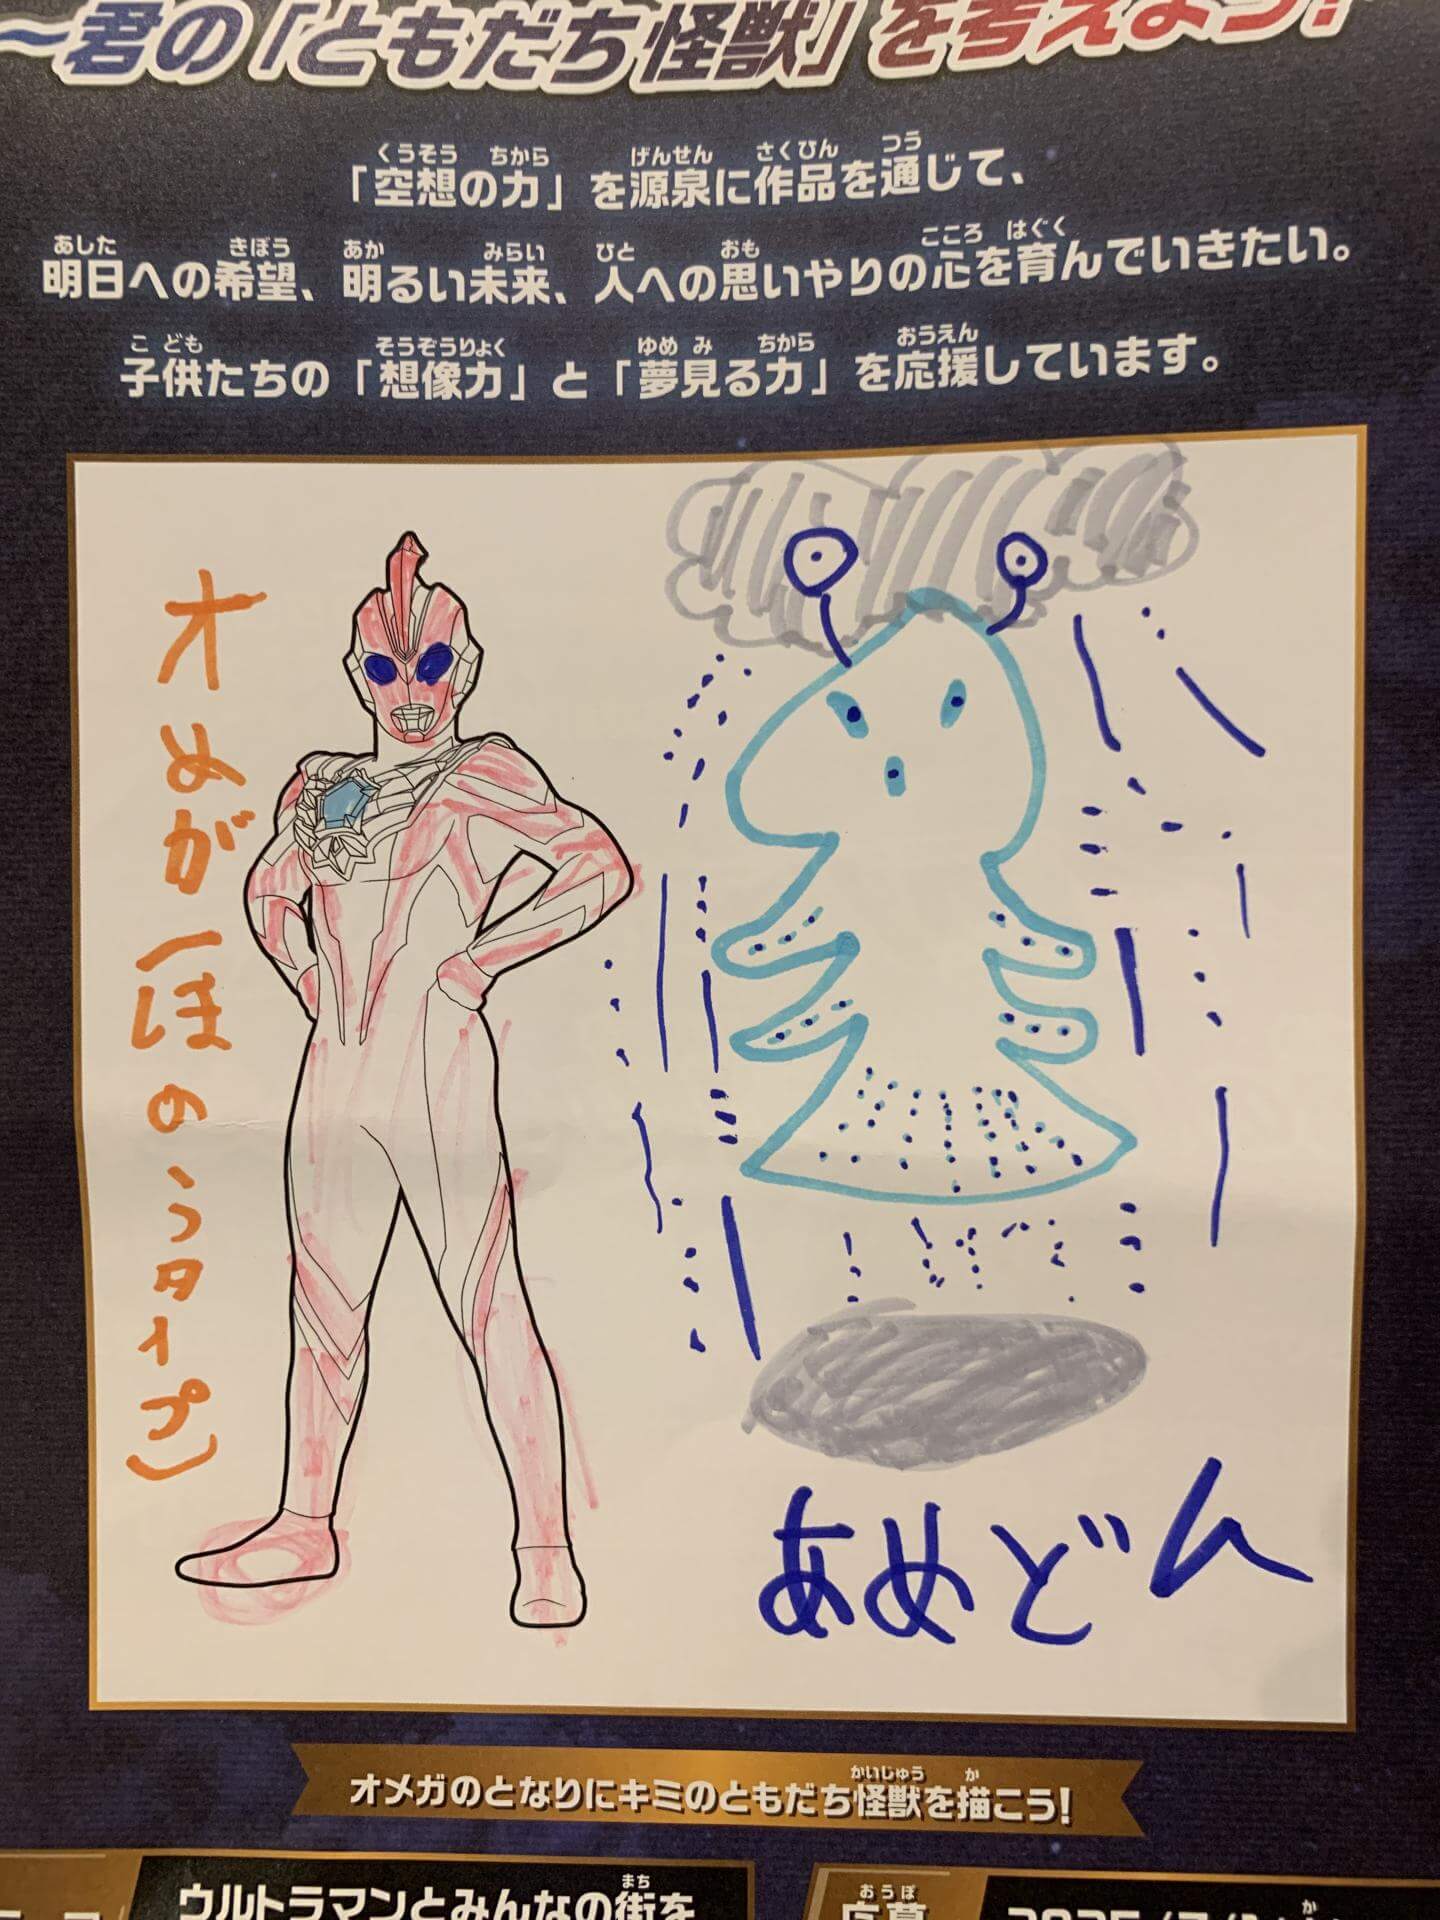 ～君の「ともだち怪獣」を考えよう!
くうそう ちから げんせん さくひん つう
「空想の力」を源泉に作品を通じて、
あした きぼう あか みらい ひと おも こころ はぐく
明日への希望、明るい未来、人への思いやりの心を育んでいきたい。
こ ども そうぞうりょく ゆめ み ちから おうえん
子供たちの「想像力」と「夢見る力」を応援しています。
オめが(ほのうタイプ)
あめどん
かいじゅう か
オメガのとなりにキミのともだち怪獣を描こう!
まち
ウルトラマンとみんなの街を
おうぼ
応募